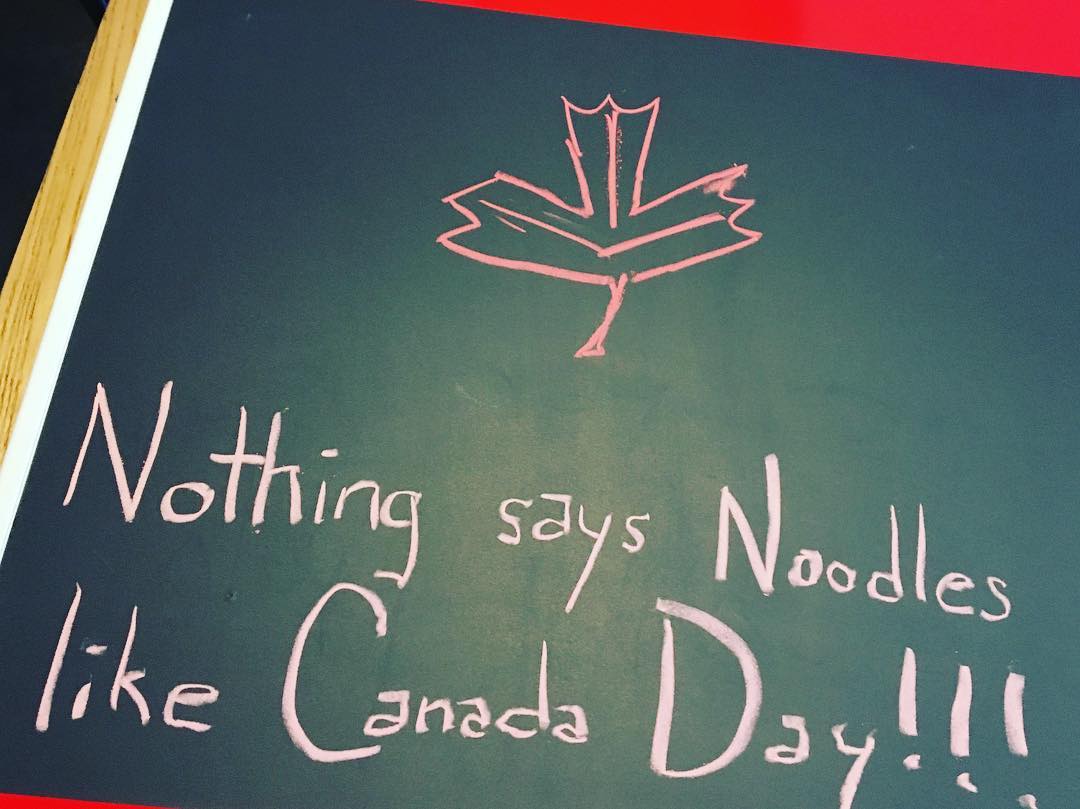 Nothing says Noodles
like Canada Day!!!